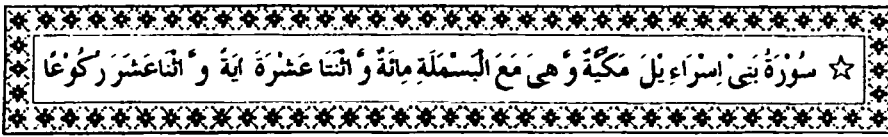 ☆ سُوْرَةُ بَنِىْ اِسْرَاءِيْلَ مَكِّيَّةٌ وَّ هِىَ مَعَ الْبَسْمَلَةِ مِائَةٌ وَّ اثْنَتَا عَشْرَةَ اٰيَةً وَّ اثْنَا عَشَرَ رُكُوْعًا